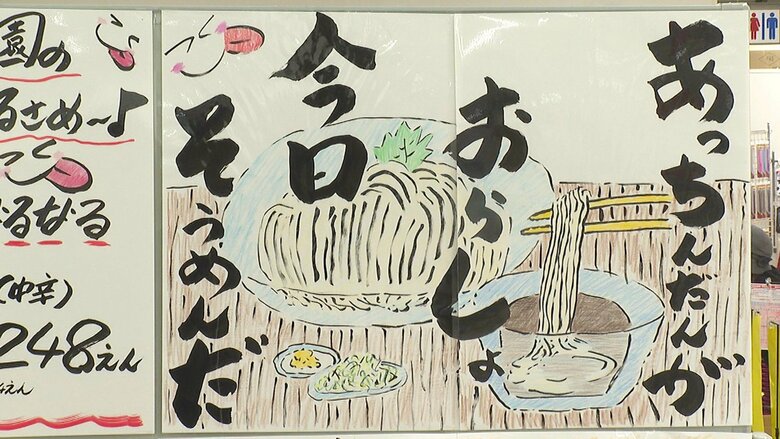 あっちんだんが
おらしょ
今日
そうめんだ
園の
るさめ～♪
るなる
（中辛）
248えん